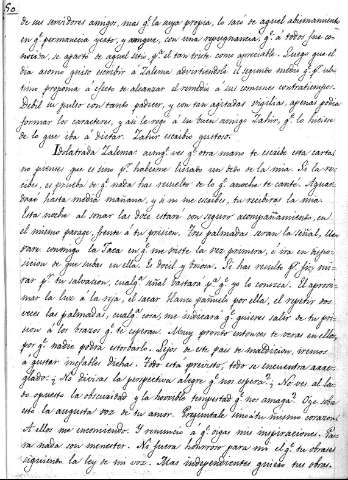 50
de sus servidores amigo, mas qe. la suya propia, lo saco de aquel abismamiento
en qe. permanecia yerto, y aunque, con una repugnancia, qe. á todos fue co-
nocida, se aparto de aquel sitio, pa. el tan triste como apreciable. Luego que el
dia asomó quiso escribir a Zalema advirtiendole el segundo medio qe. pr. ul-
timo proponia á efecto de alcanzar el remedio á sus comunes contratiempos.
Debil su pulso con tanto padecer, y con tan agitadas vigilias, apenas podia
formar los caracteres, y asi le rogo á su buen amigo Zahir, qe. lo hiciese
de lo que iba á dictar. Zahir escribio gustoso.
Idolatrada Zalema: aunqe. ves qe. otra mano te escribe esta carta,
no pienses que es sino pr. haberme librado un dedo de la mia. Si la re-
cibes, es prueba de qe. nada has resuelto de lo qe. anoche te canté. Aguar-
daré hasta media mañana, y si no me escribes, tu recibiras la mia.
Esta noche al sonar las doce estaré con seguro acompañamiento, en
el mismo parage, frente á tu prision. Tres palmadas seran la señal, lle-
varé conmigo la Jaca en qe. me viste la vez primera, é irá en dispo-
sicion de que subas en ella. Es docil y briosa. Si has resuelto pr. fin, mi-
rar pr. tu salvacion, cualqa. señal bastará pa. qe. yo lo conozca. El aproxi-
mar la luz á la reja, el sacar blanco pañuelo por ella, el repetir dos
veces las palmadas, cualqa. cosa, me indicará qe. quieres salir de tu pri-
sion á los brazos qe. te esperan. Muy pronto entonces te veras en ellos,
por qe. nadie podrá estorbarlo. Lejos de este pais de maldicion, iremos
a gustar inefables dichas. Todo está previsto, todo se encuentra arre-
glado: ¿No divisas la perspectiva alegre qe. nos espera? ¿No ves al la-
do opuesto la obscuridad y la horrible tempestad qe. nos amaga? Oye
está la augusta voz de tu amor. Preguntale incauta mismo corazon.
A ellos me encomiendo. Y renuncio á qe. oigas mis inspiraciones. Pa-
ra nada son menester. No fuera honroso para mi el qe. tu obrases
siguiendo la ley de mi voz. Mas independientes quiero tus obras.